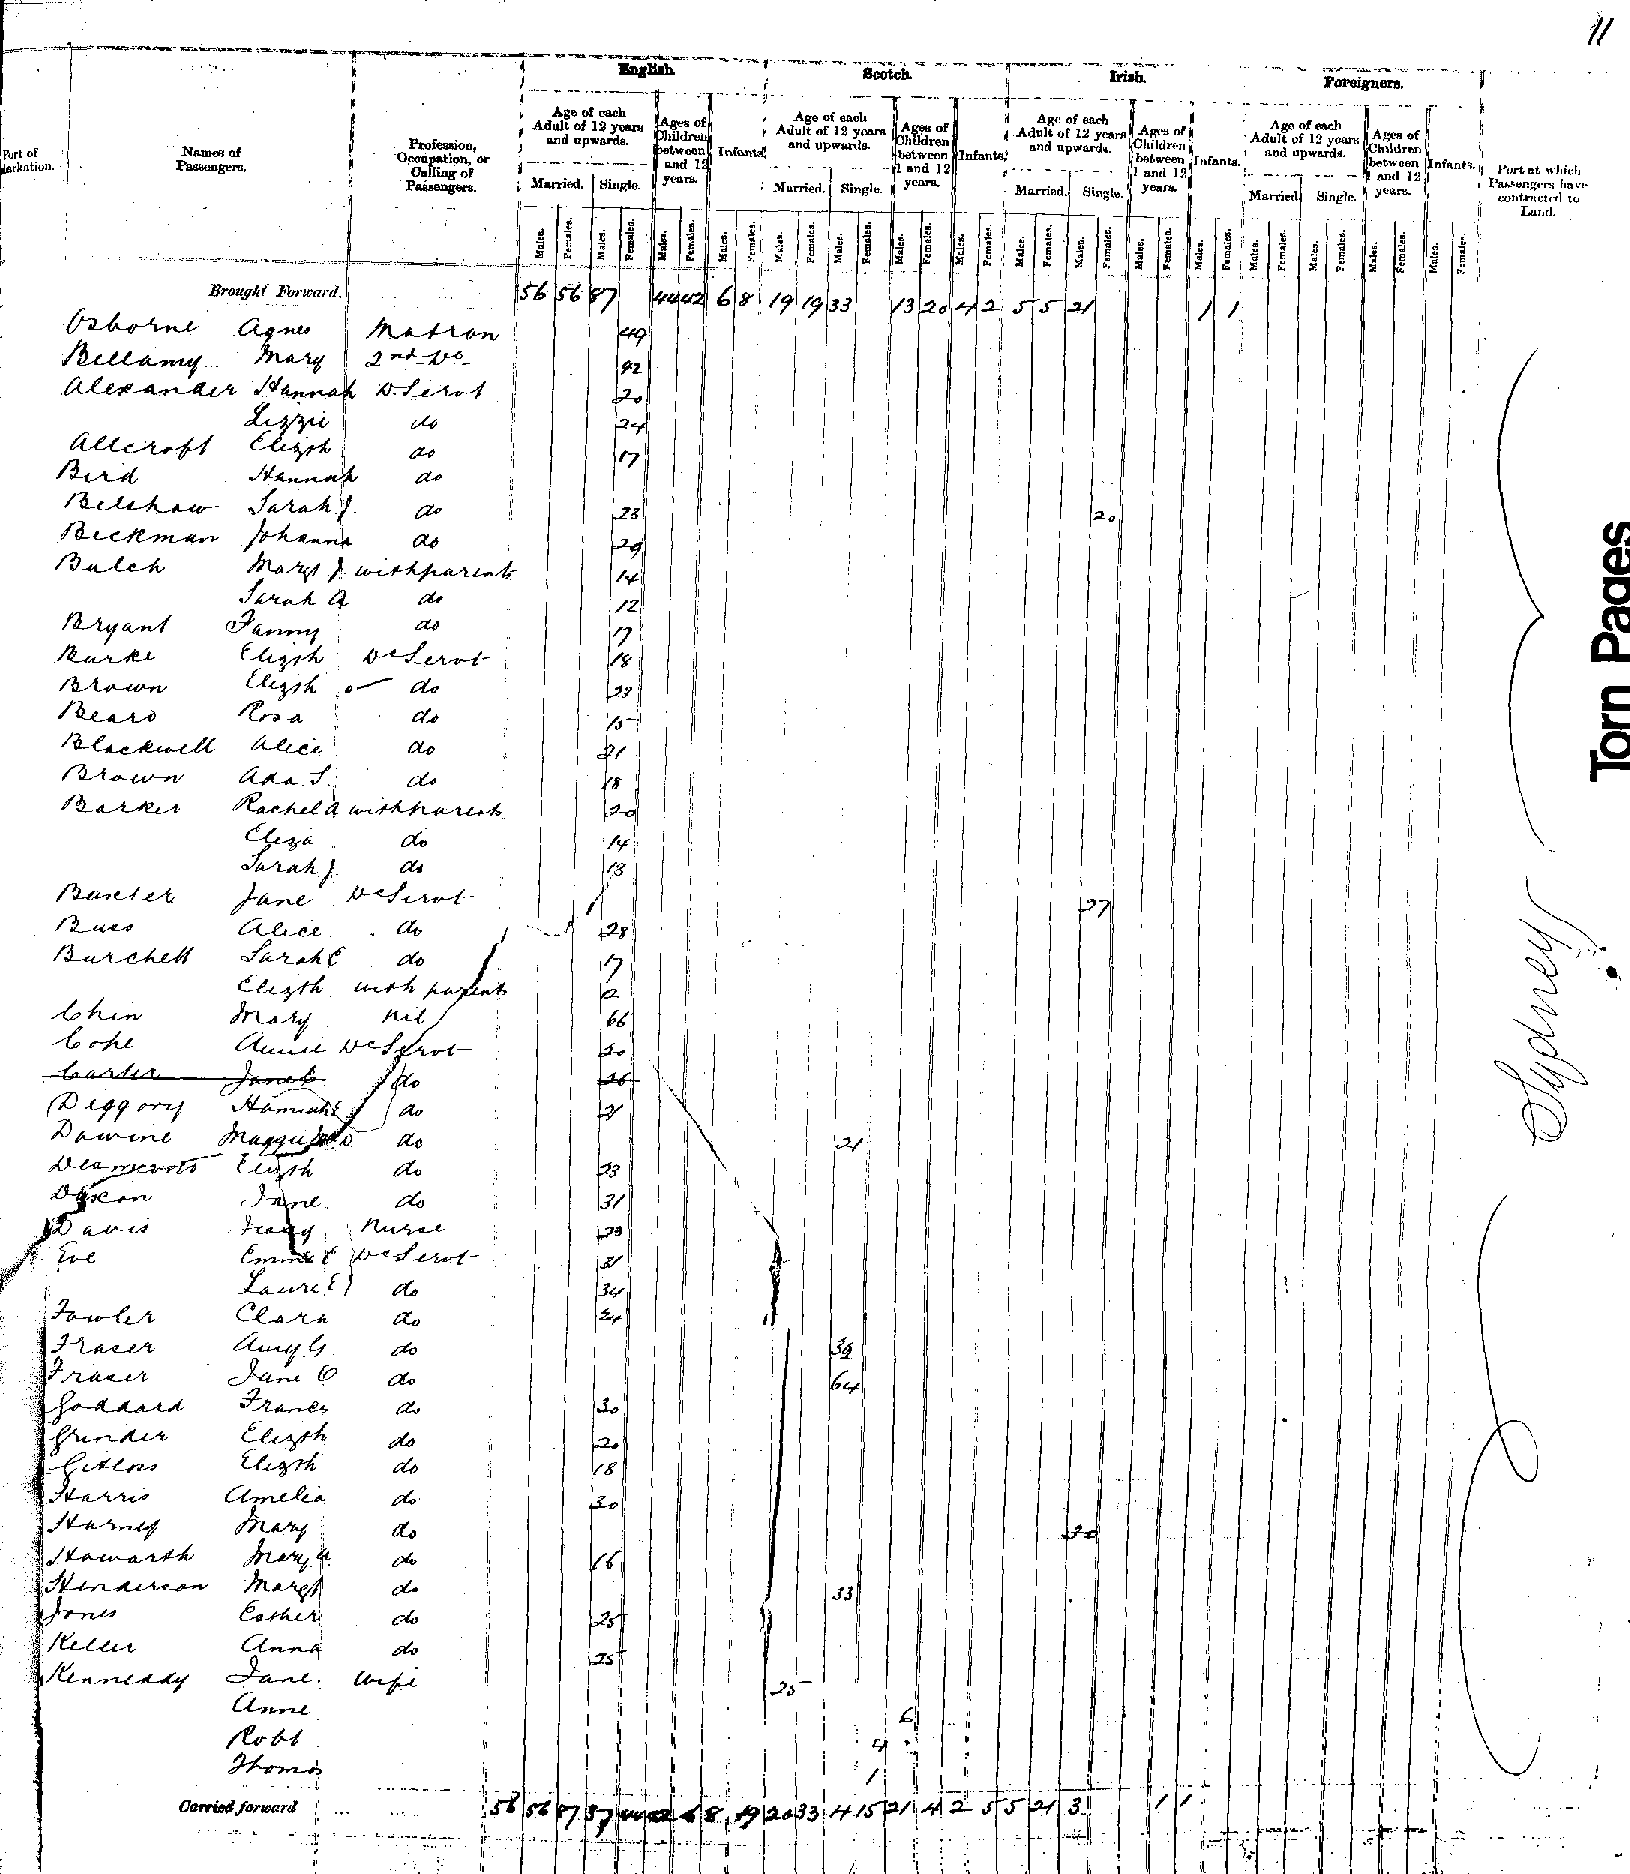 11
English. Scotch. Irish. Foreigners.
Port of Embarkation. Names of Passengers. Profession, Occupation, or Calling of Passengers. Age of each Adult of 12 years and upwards. Ages of Children between 1 and 12 years. Infants. Age of each Adult of 12 years and upwards. Ages of Children between 1 and 12 years. Infants. Age of each Adult of 12 years and upwards. Ages of Children between 1 and 12 years. Infants. Age of each Adult of 12 years and upwards. Ages of Children between 1 and 12 years. Infants. Port at which Passengers have contracted to Land.
Married. Single. Married. Single. Married. Single. Married. Single.
Males. Females. Males. Females. Males. Females. Males. Females. Males. Females. Males. Females. Males. Females. Males. Females. Males. Females. Males. Females. Males. Females. Males. Females. Males. Females. Males. Females. Males. Females. Males. Females.
Brought Forward. 56 56 87 44 42 6 8 19 19 33 13 20 4 2 5 5 21 1 1
Osborne Agnes Matron 49
Bellamy Mary 2nd Do 42
Alexander Hannah D. Servt 20
Lizzie do 24
Allcroft Elizth do 17
Bird Hannah do
Belshaw Sarah J. do 23 20
Beckman Johanna do 29
Balch Margt J with parents 14
Sarah A do 12
Bryant Fanny do 17
Burke Elizth Dc Servt 18
Brown Elizth do 23
Beard Rosa do 15
Blackwell Alice do 21
Brown Ada S. do 18
Barker Rachel A with parents 20
Eliza do 14
Sarah J. do 13
Baxter Jane Dc Servt 27
Bues Alice do 28
Burchell Sarah E do 17
Elizth with parents 12
Chin Mary nil 66
Cope Annie Dc Servt 20
Carter Jane do 26
Deggory Hannah E do 21
Downie Maggie do 21
Elizth do 23
Dixon Jane do 31
Davis Nurse
Eve Emma E Dc Servt 31
Laura E do 34
Fowler Clara do 24
Fraser Amy G do 39
Fraser Jane C do 64
Goddard Frances do 30
Grinder Elizth do 20
Elizth do 18
Harris Amelia do 30
Harney Mary do 20
Howarth Mary A do 16
Henderson Margt do 33
Jones Esther do 25
Keller Anna do 25
Kenneddy Jane. Wife 25
Anne 6
Robt 4
Thomas 1
Carried forward 56 56 87 37 44 42 6 8 19 20 33 4 15 21 4 2 5 5 21 3 1 1
Sydney
Torn Pages